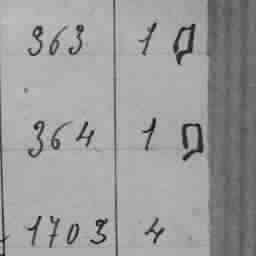 363 1 ק
364 1 ק
1703 4